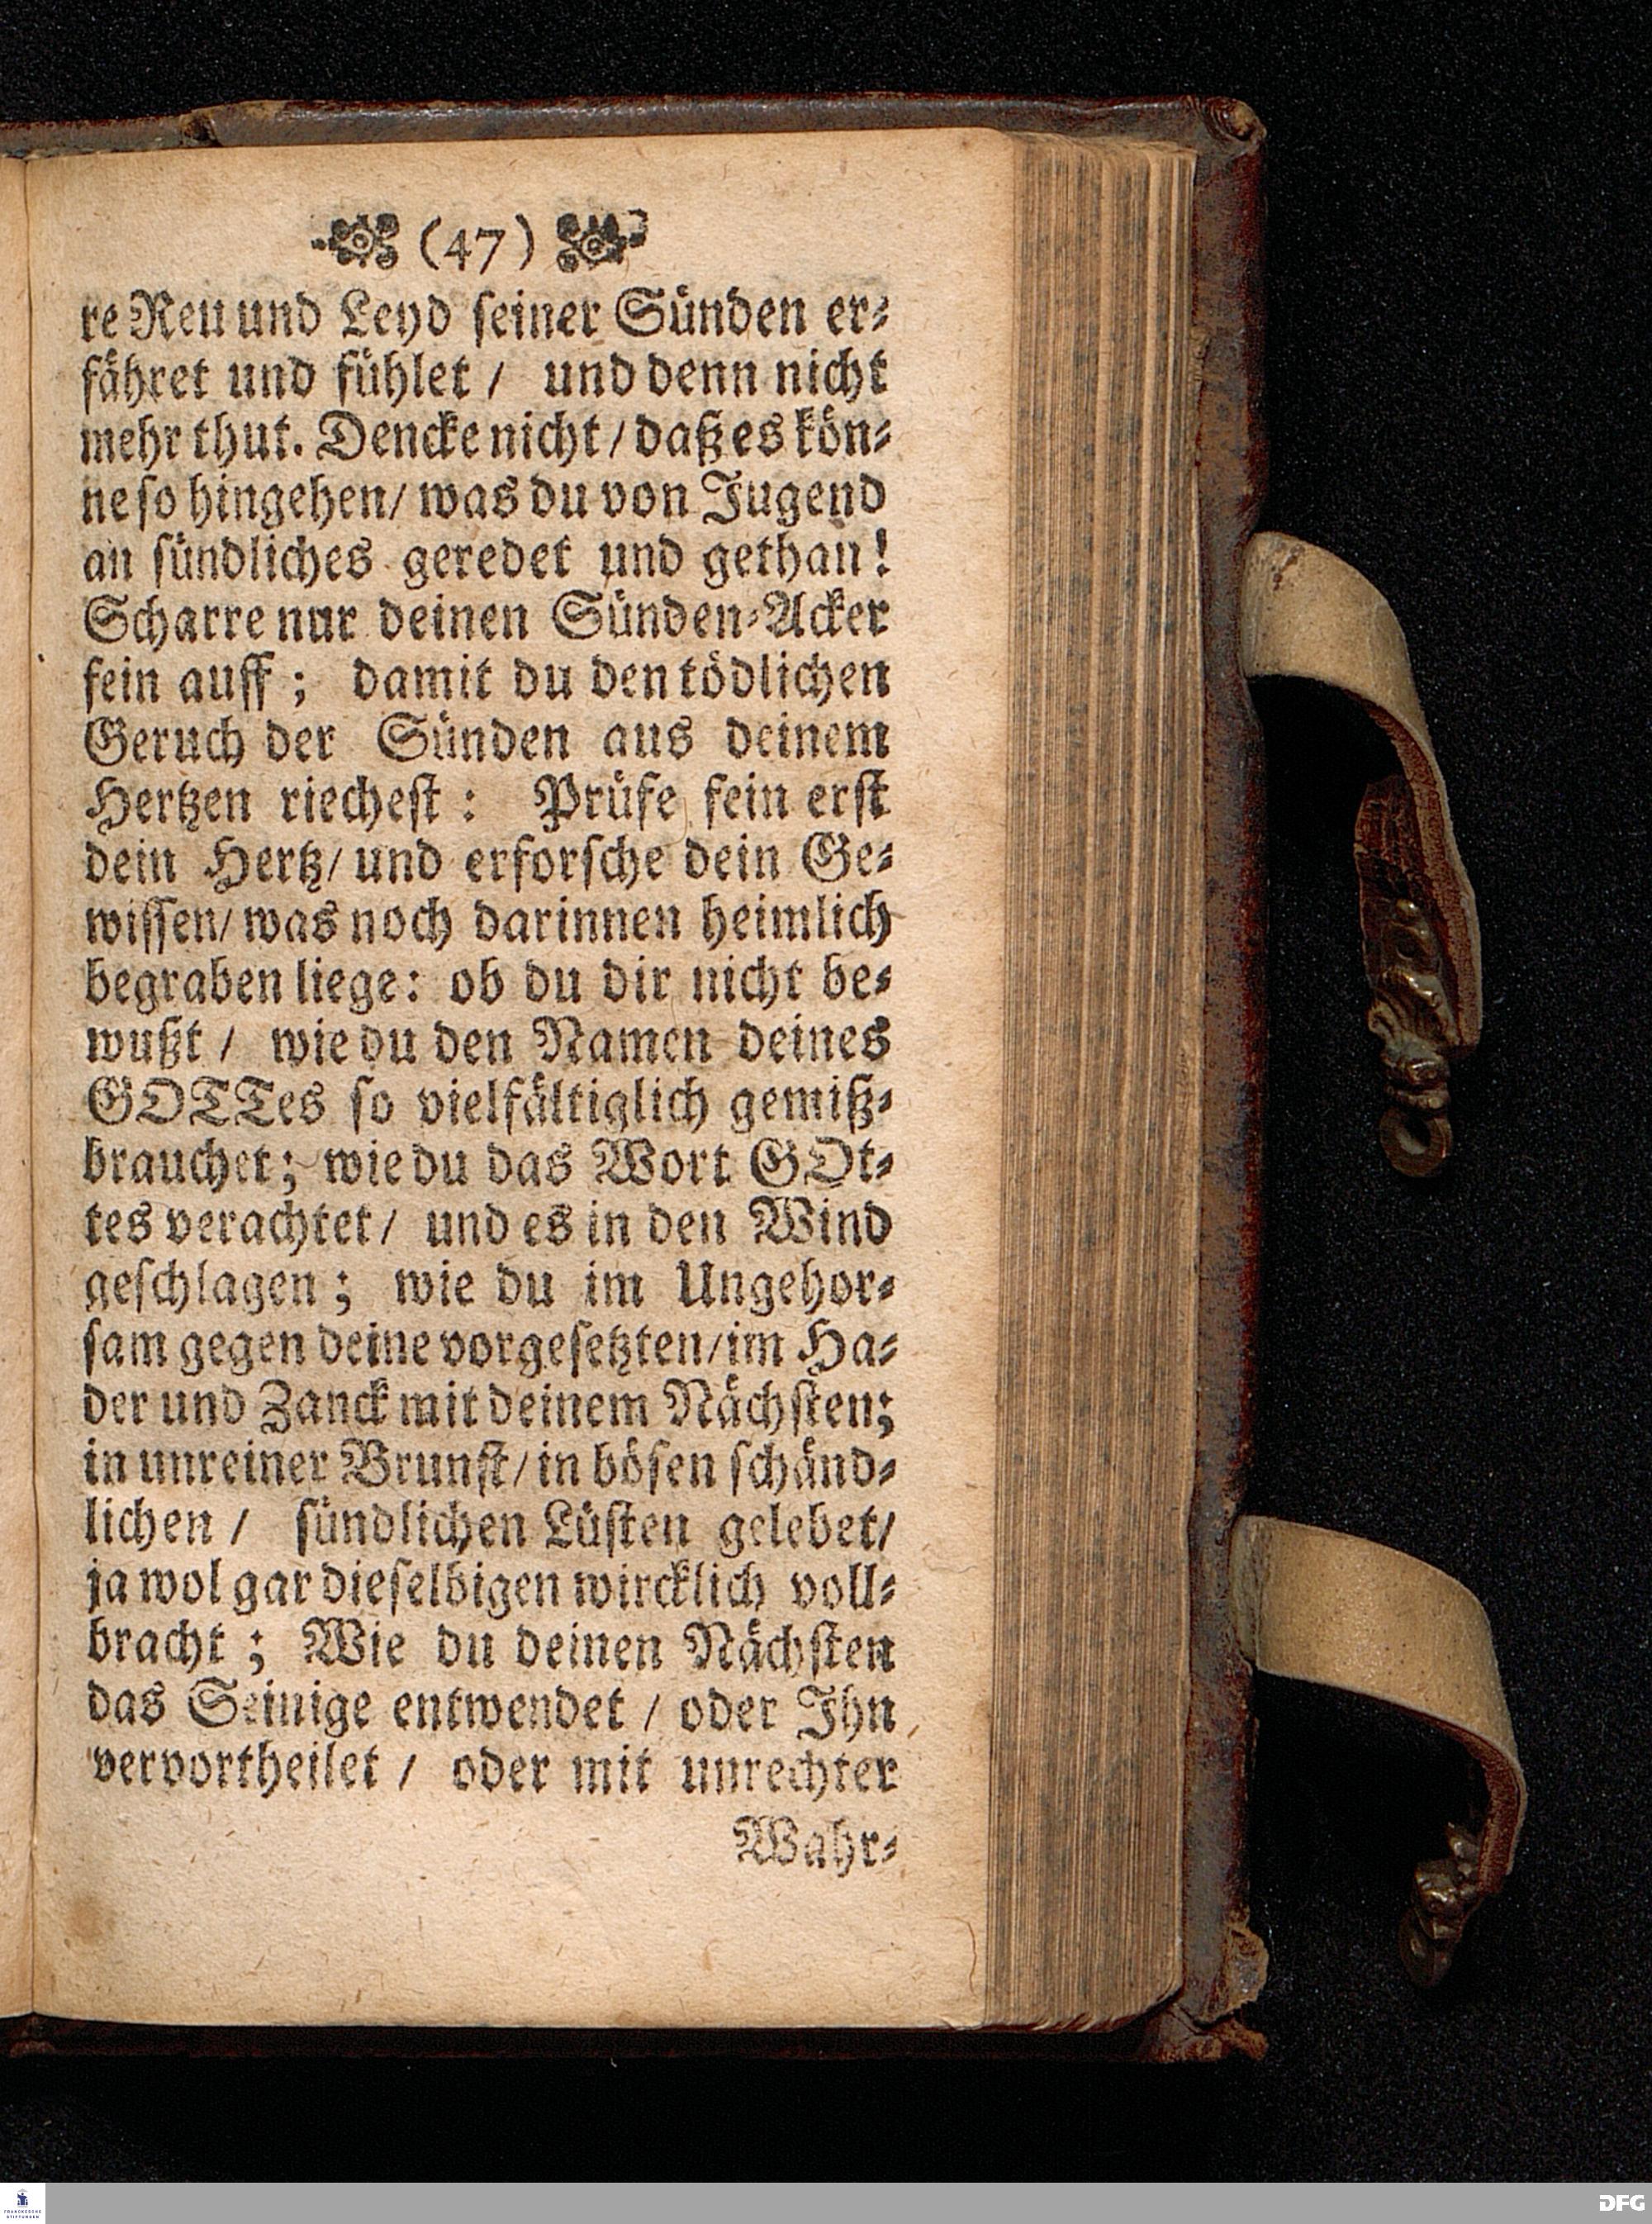 (47)
re Reu und Leyd seiner Sünden er-
fähret und fühlet / und denn nicht
mehr thut. Dencke nicht / daß es kön-
ne so hingehen / was du von Jugend
an sündliches geredet und gethan!
Scharre nur deinen Sünden-Acker
fein auff; damit du den tödlichen
Geruch der Sünden aus deinem
Hertzen riechest: Prüfe fein erst
dein Hertz / und erforsche dein Ge-
wissen / was noch darinnen heimlich
begraben liege: ob du dir nicht be-
wußt / wie du den Namen deines
GOTTes so vielfältiglich gemiß-
brauchet; wie du das Wort GOt-
tes verachtet / und es in den Wind
geschlagen; wie du im Ungehor-
sam gegen deine vorgesetzten / im Ha-
der und Zanck mit deinem Nächsten;
in unreiner Brunst / in bösen schänd-
lichen / sündlichen Lüsten gelebet /
ja wol gar dieselbigen wircklich voll-
bracht; Wie du deinen Nächsten
das Seinige entwendet / oder Ihn
vervortheilet / oder mit unrechter
Wahr-
FRANCKESCHE
STIFTUNGEN
DFG